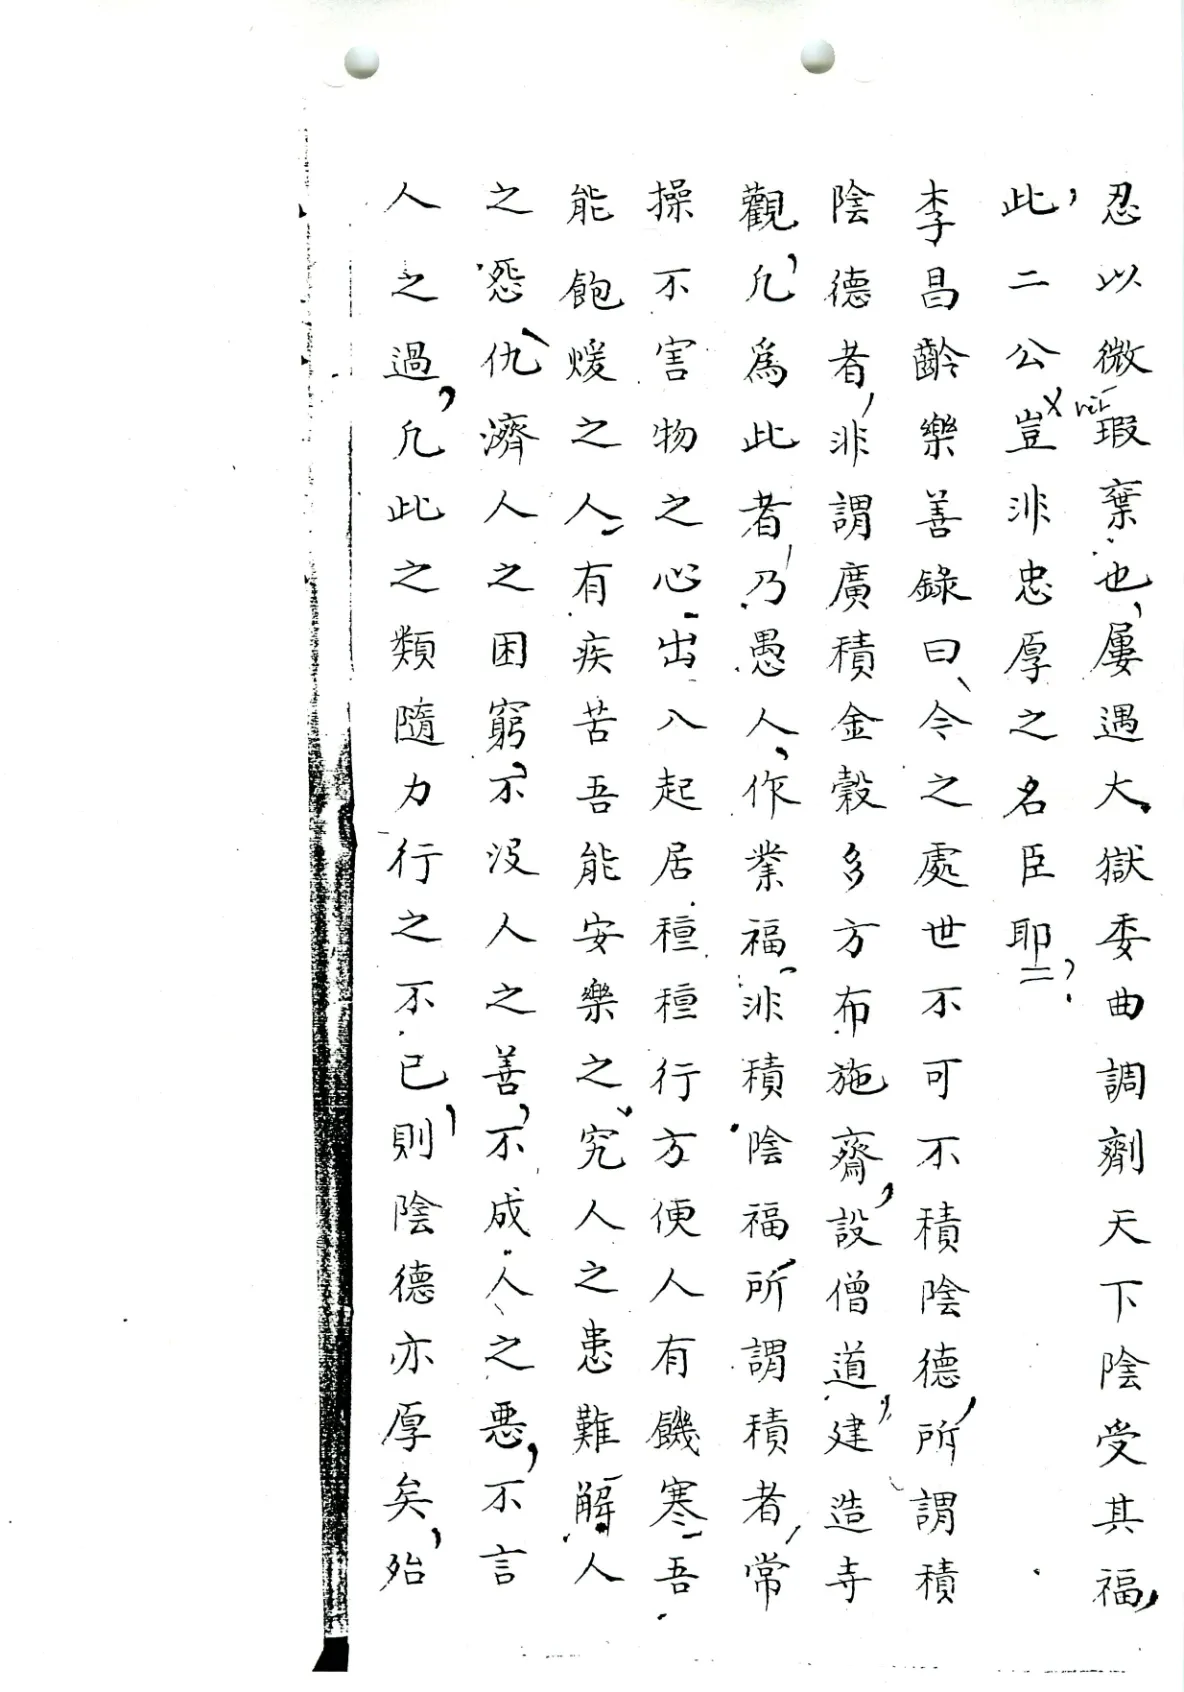 忍以微瑕棄也,屢遇大獄委曲調劑天下陰受其福,
此,二公豈非忠厚之名臣耶?
李昌齡樂善錄曰、令之處世不可不積陰德,所謂積
陰德者,非謂廣積金穀多方布施齋,設僧道,建造寺
觀,凡為此者,乃愚人,作業福、非積陰福,所謂積者,常
操不害物之心出入起居種種行方便人有饑寒吾
能飽煖之人有疾苦吾能安樂之究人之患難解人
之怨仇、濟人之困窮,不沒人之善,不成人之惡,不言
人之過,凡此之類隨力行之不已,則陰德亦厚矣,殆